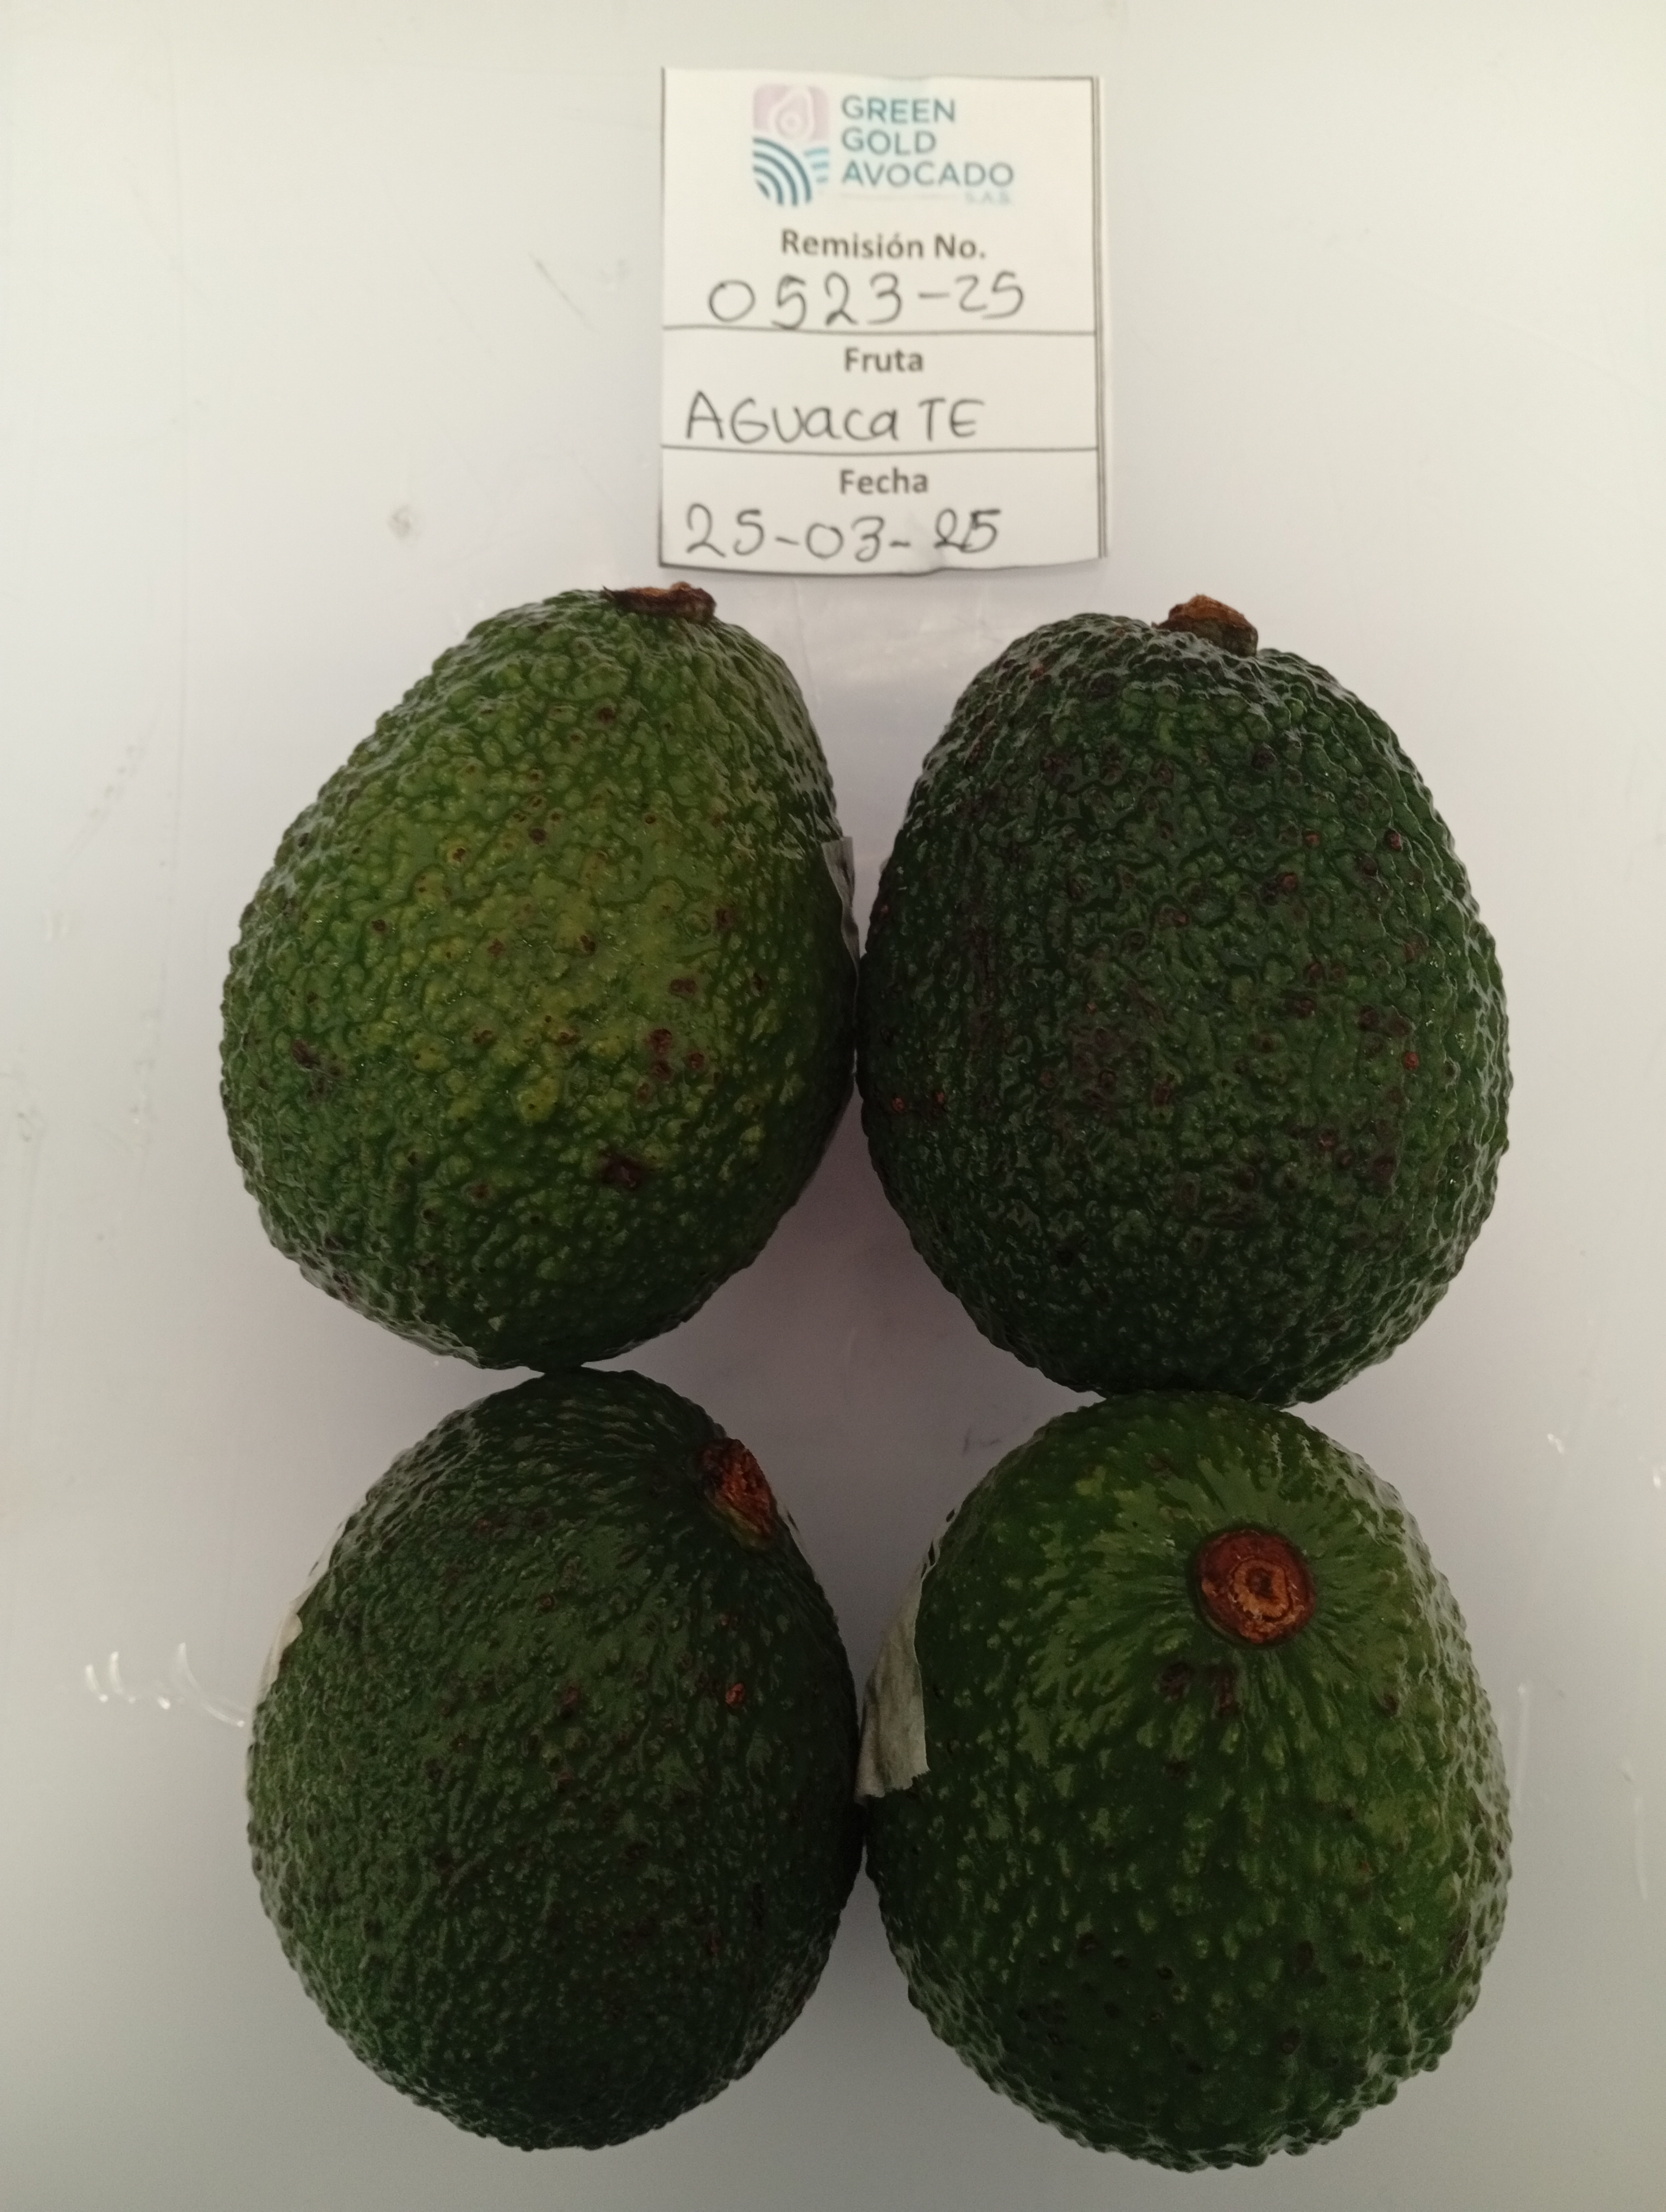 GREEN
GOLD
AVOCADO
S.A.S.
Remisión No.
0523-25
Fruta
AGuaca TE
Fecha
25-03-25